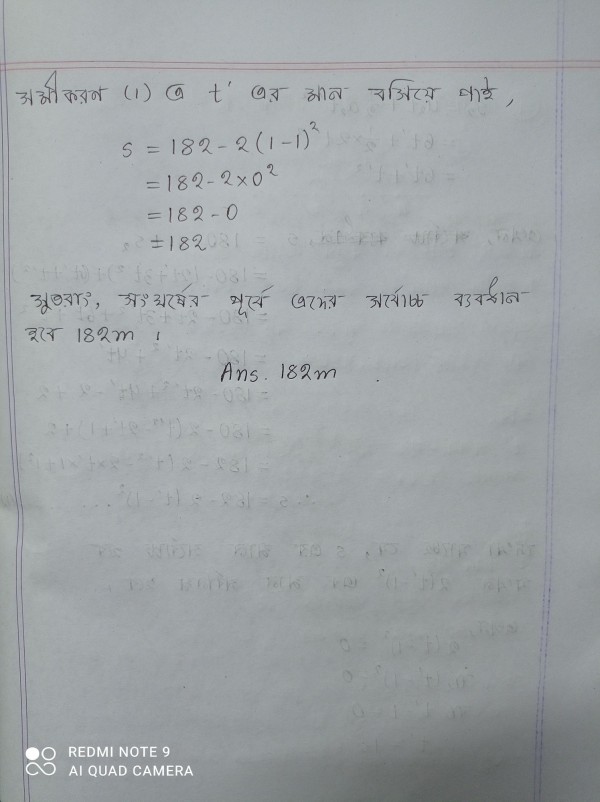 সমীকরন (1) এ t' এর মান বসিয়ে পাই,
s = 182 - 2(1-1)²
= 182 - 2×0²
= 182 - 0
= 182
সুতরাং, সংঘর্ষের পূর্বে এদের সর্বোচ্চ ব্যবধান
হবে 182m ।
Ans. 182m .
REDMI NOTE 9
AI QUAD CAMERA